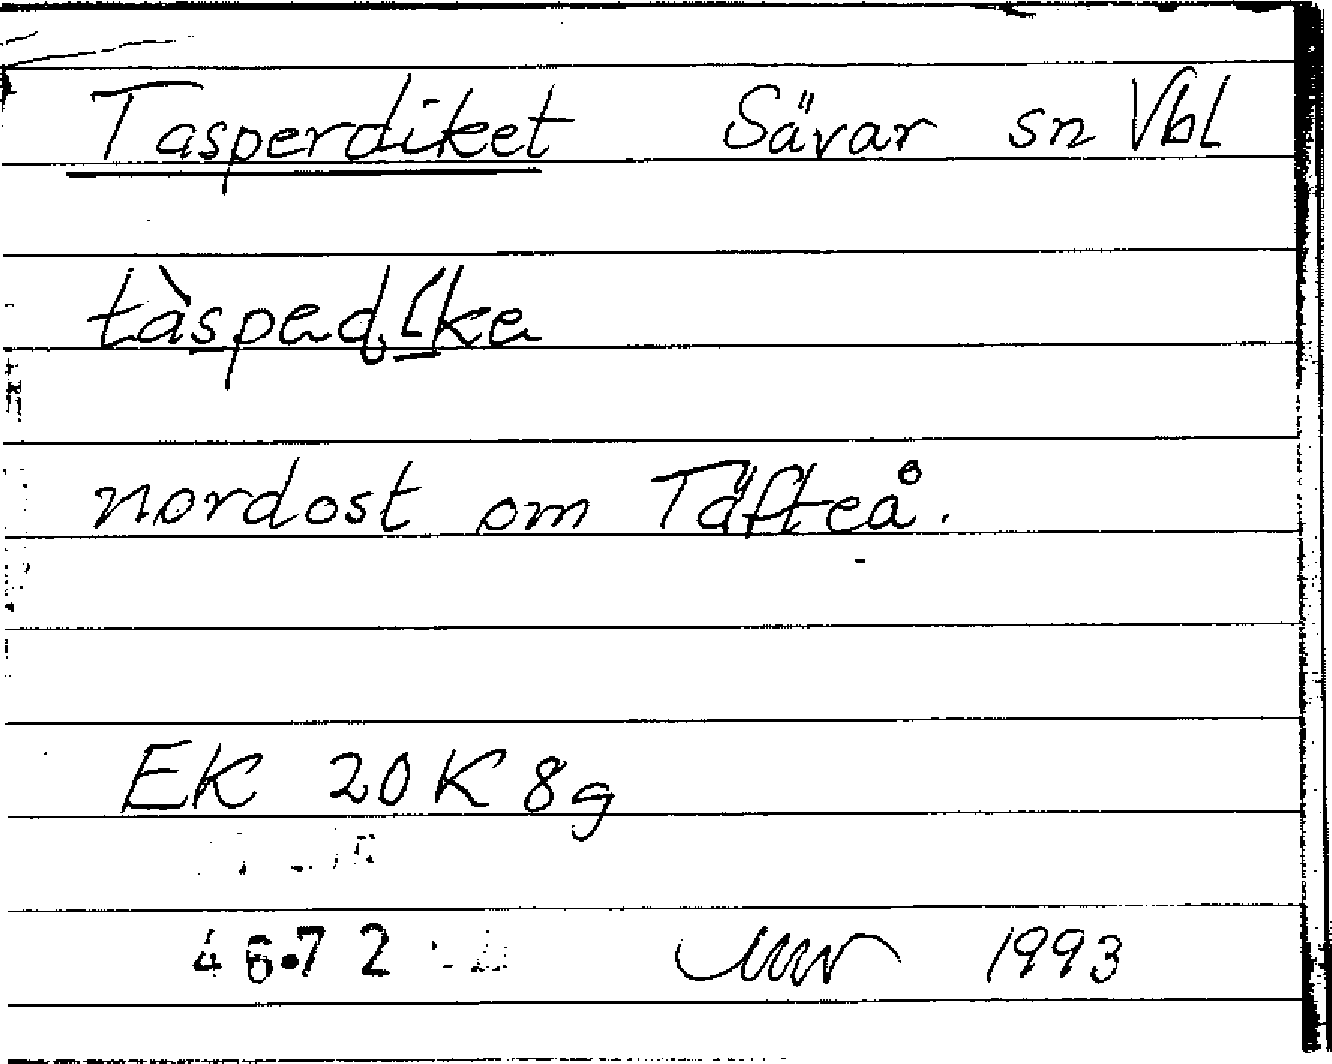 Tasperdiket Sävar sn Vbl
tàspedı̣ke
nordost om Täfteå.
EK 20K 8g
4672
1993